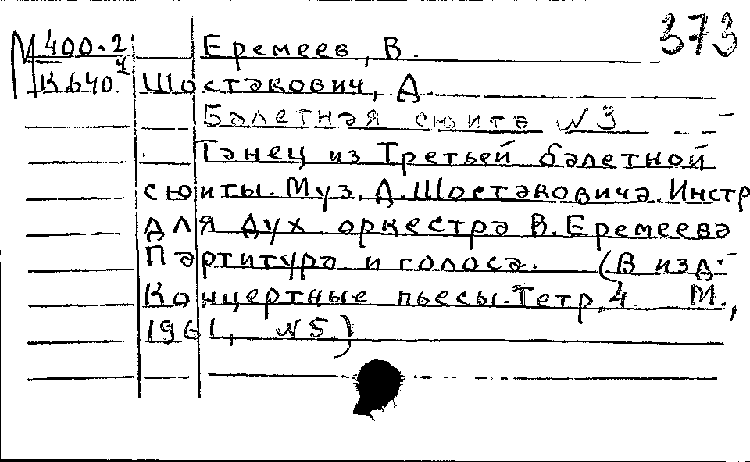 373
М 400.2 Еремеев, В.
К 640.4 Шостакович, Д.
Балетная сюита №3
Танец из Третьей балетной
сюиты. Муз. Д. Шостаковича. Инстр
для дух оркестра В. Еремеева
Партитура и голоса. (В изд:
Концертные пьесы. Тетр. 4 М.,
1961, №5)